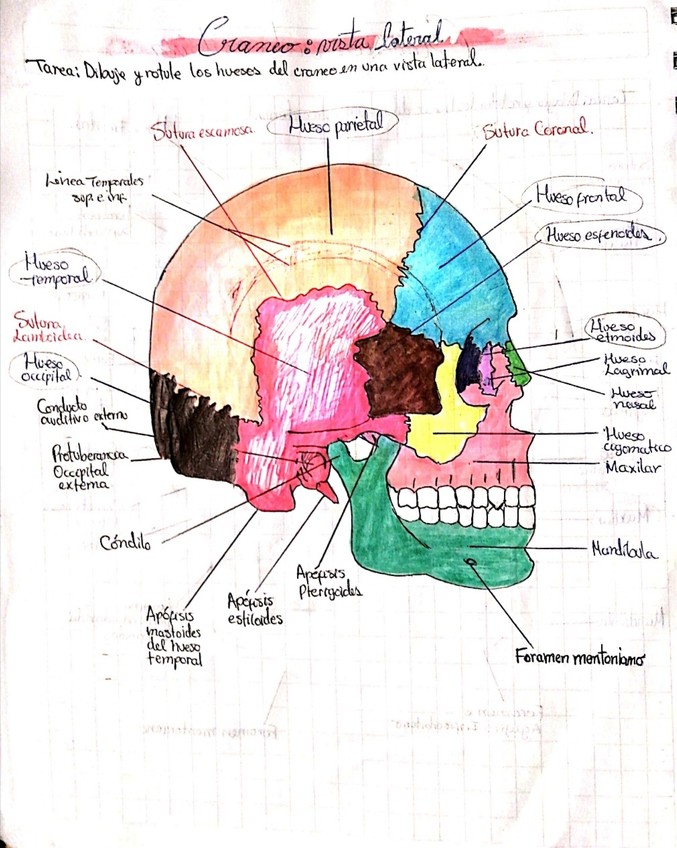 Craneo: vista lateral
Tarea: Dibuje y rotule los huesos del craneo en una vista lateral.
Sutura escamosa
Hueso parietal
Sutura Coronal.
Linea Temporales
sup. e inf.
Hueso frontal
Hueso esfenoides.
Hueso
temporal
Sutura
Lamboidea
Hueso
occipital
Conducto
auditivo externo
Protuberancia
Occipital
externa
Hueso
etmoides
Hueso
Lagrimal
Hueso
nasal
Hueso
cigomatico
Maxilar
Cóndilo
Mandibula
Apófisis
Pterigoides
Apófisis
estiloides
Apófisis
mastoides
del hueso
temporal
Foramen mentoniano